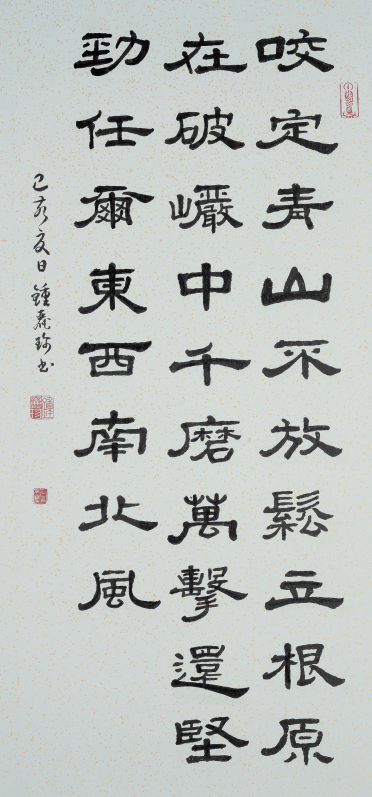 咬定青山不放鬆立根原
在破巖中千磨萬擊還堅
勁任爾東西南北風
己亥夏日鍾珍书